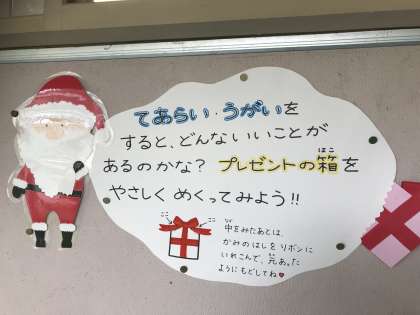 てあらい・うがいを
すると、どんないいことが
あるのかな？プレゼントの箱を
はこ
やさしくめくってみよう!!
ここ
ここ
なか
中をみたあとは、
かみのはしをリボンに
いれこんで、元あった
もと
ようにもどしてね♥